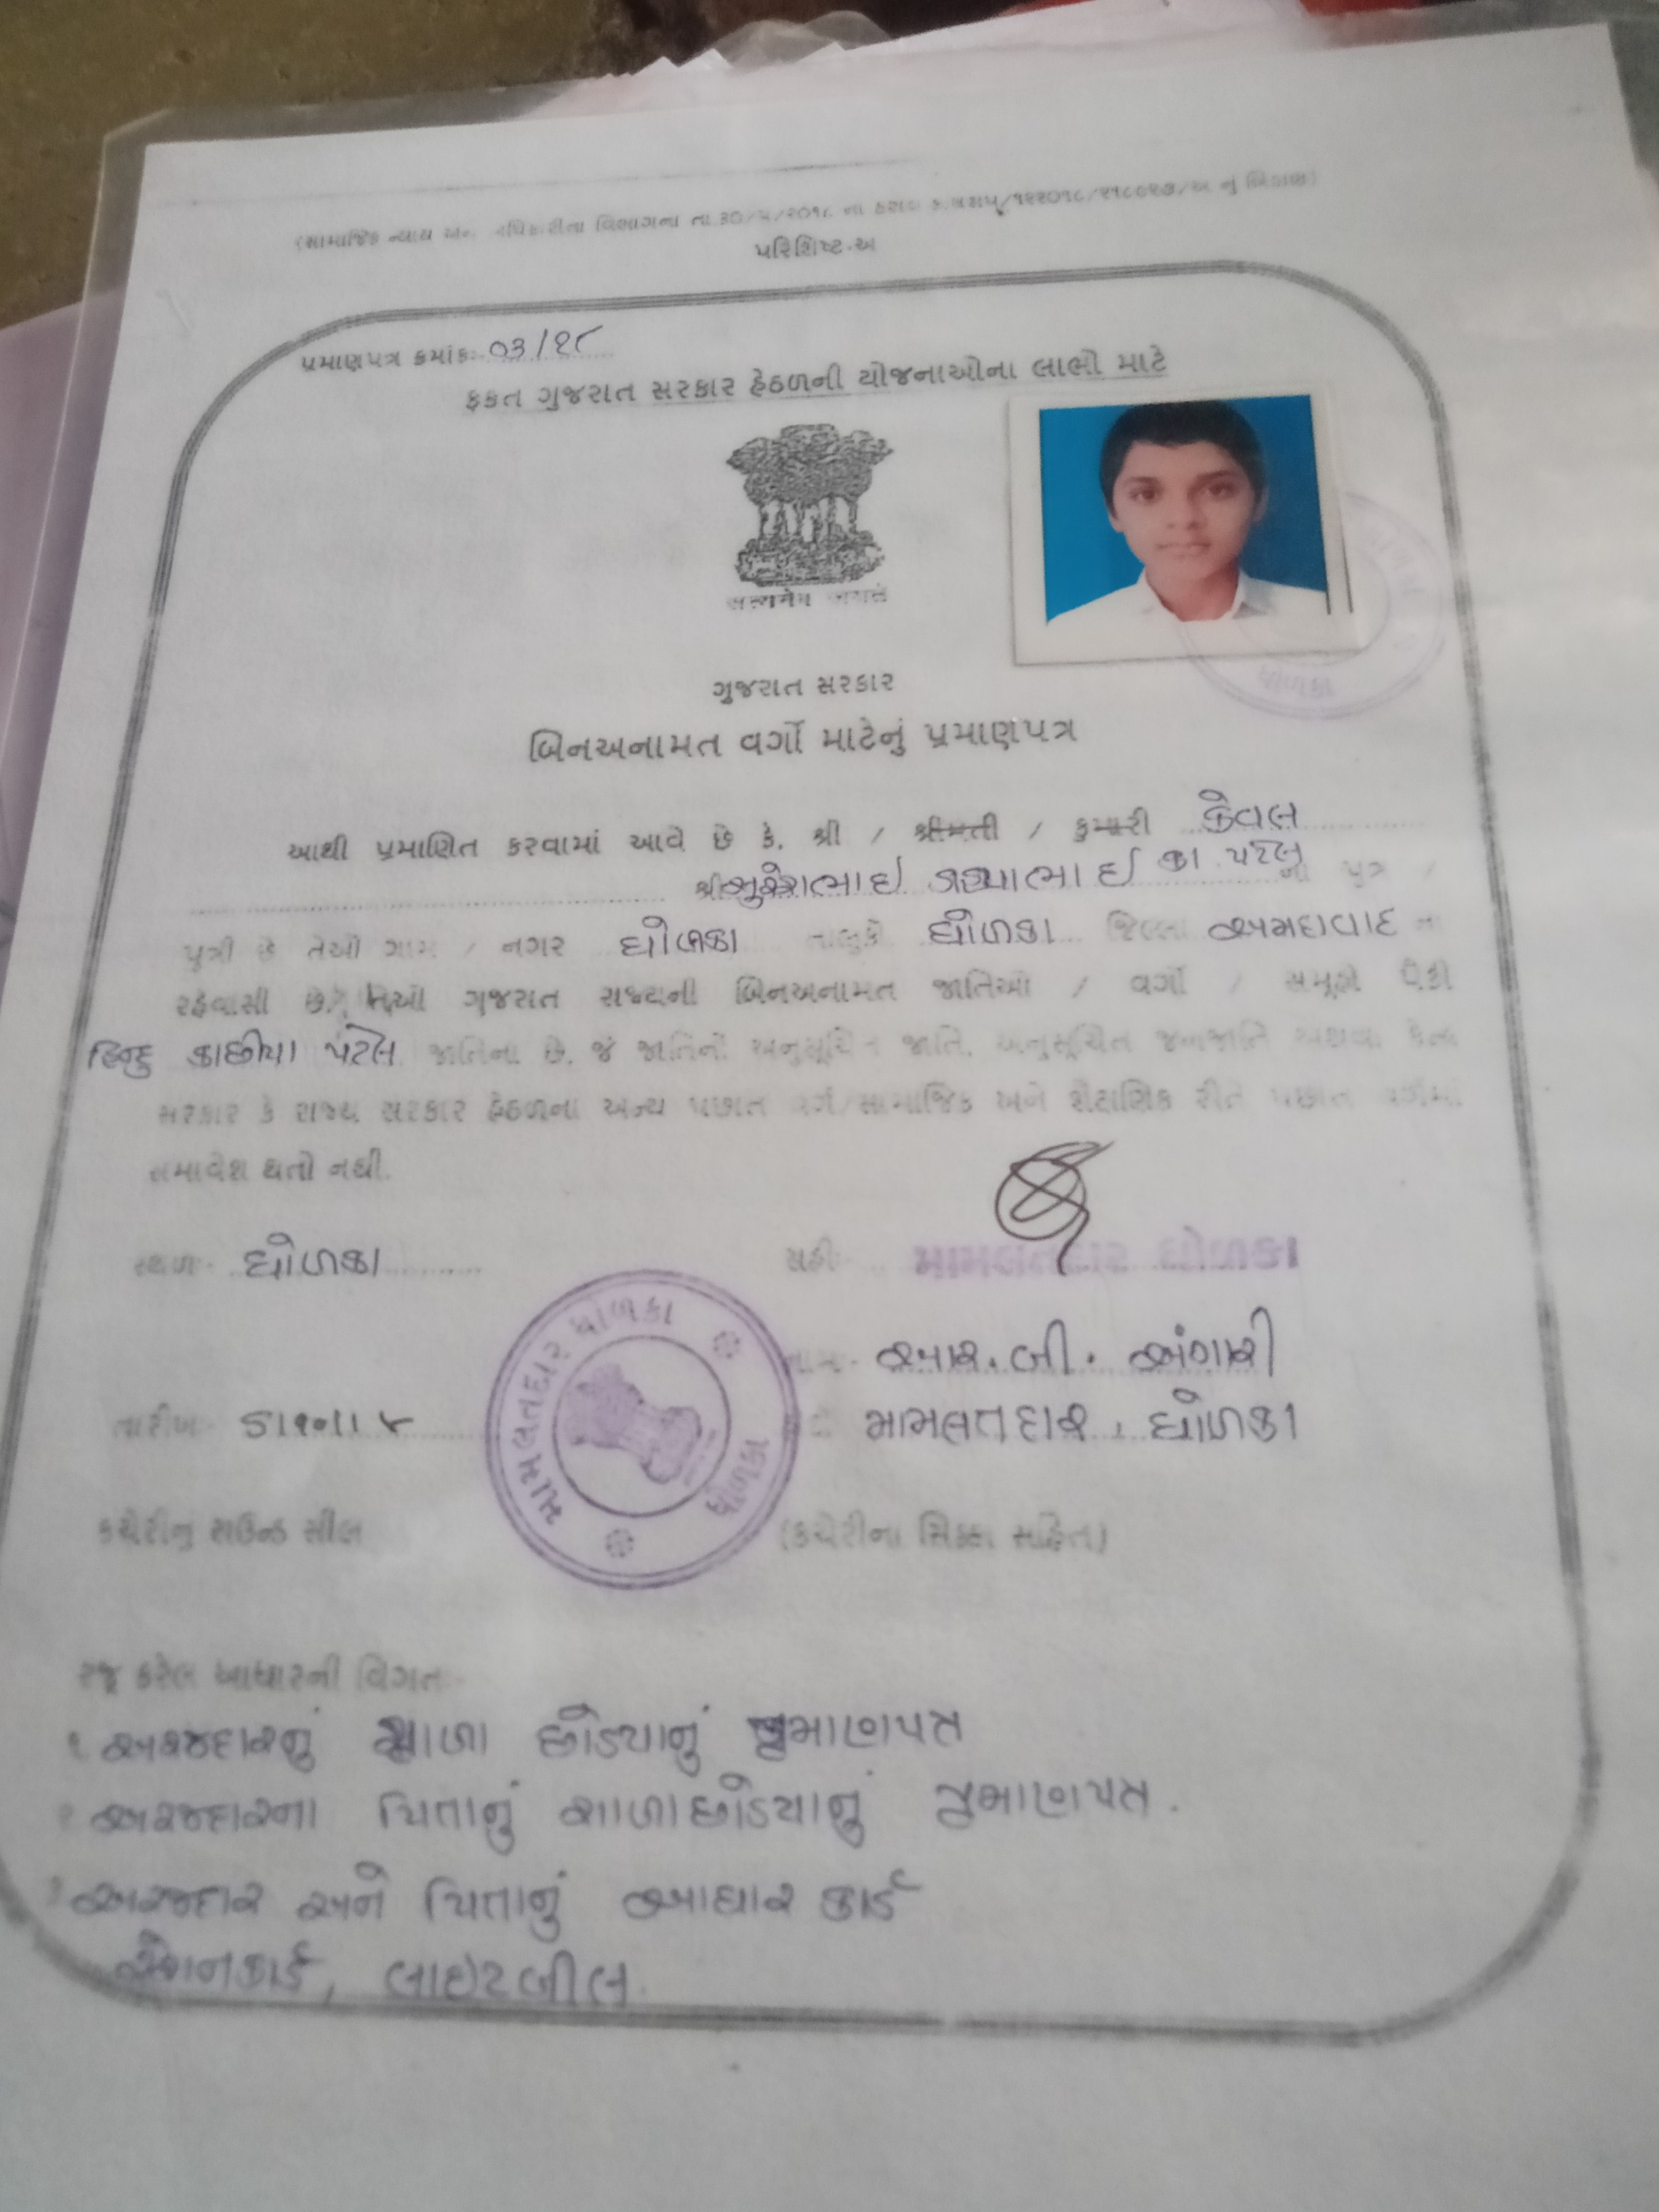 (સામાજિક ન્યાય અને અધિકારીતા વિભાગના તા.૩૦/૫/૨૦૧૮ ના ઠરાવ
પરિશિષ્ટ-અ
પ્રમાણપત્ર ક્રમાંકઃ- ૦૩/૧૮
ફક્ત ગુજરાત સરકાર હેઠળની યોજનાઓના લાભો માટે
सत्यमेव जयते
ગુજરાત સરકાર
બિનઅનામત વર્ગો માટેનું પ્રમાણપત્ર
આથી પ્રમાણિત કરવામાં આવે છે કે, શ્રી / શ્રીમતી / કુમારી કેવલ
શ્રી સુરેશભાઇ કા પટેલ ના પુત્ર /
પુત્રી છે તેઓ ગામ / નગર ધોળકા તાલુકે ધોળકા જિલ્લા અમદાવાદ ના
રહેવાસી છે. તેઓ ગુજરાત રાજ્યની બિનઅનામત જાતિઓ / વર્ગો / સમૂહો પૈકી
હિન્દુ કાછીયા પટેલ જાતિના છે, જે જાતિનો અનુસૂચિત જાતિ, અનુસૂચિત જનજાતિ અથવા કેન્દ્ર
સરકાર કે રાજ્ય સરકાર હેઠળના અન્ય પછાત વર્ગ/સામાજિક અને શૈક્ષણિક રીતે પછાત વર્ગમાં
સમાવેશ થતો નથી.
સ્થળ:- ધોળકા
સહી:- મામલતદાર ધોળકા
નામ:- આર.બી. અંગારી
તારીખ:-
મામલતદાર, ધોળકા
મામલતદાર ધોળકા
ધોળકા
કચેરીનું રાઉન્ડ સીલ
(કચેરીના સિક્કા સહિત)
રજૂ કરેલ આધારની વિગતઃ-
૧ અરજદારનું શાળા છોડયાનું પ્રમાણપત્ર
૨ અરજદારના પિતાનું શાળા છોડયાનું પ્રમાણપત્ર.
૩ અરજદાર અને પિતાનું આધાર કાર્ડ
રેશનકાર્ડ, લાઇટબીલ.